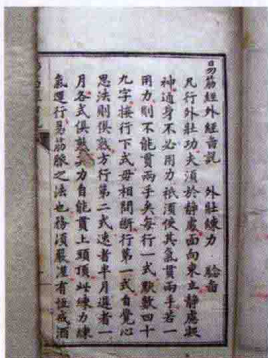 易筋經外經音說 外壯練力 驗畜
凡行外壯功夫須於靜處面向東立靜處凝
神通身不必用力祇須使其氣貫兩手若一
用力則不能貫兩手矣每行一式默數四十
九字接行下式毋相間斷行第一式自覺心
思法則俱熟方行第二式速者半月遲者一
月各式俱熟力自能貫上頭頂此練力練
氣運行易筋脈之法也務須嚴謹有恆戒酒